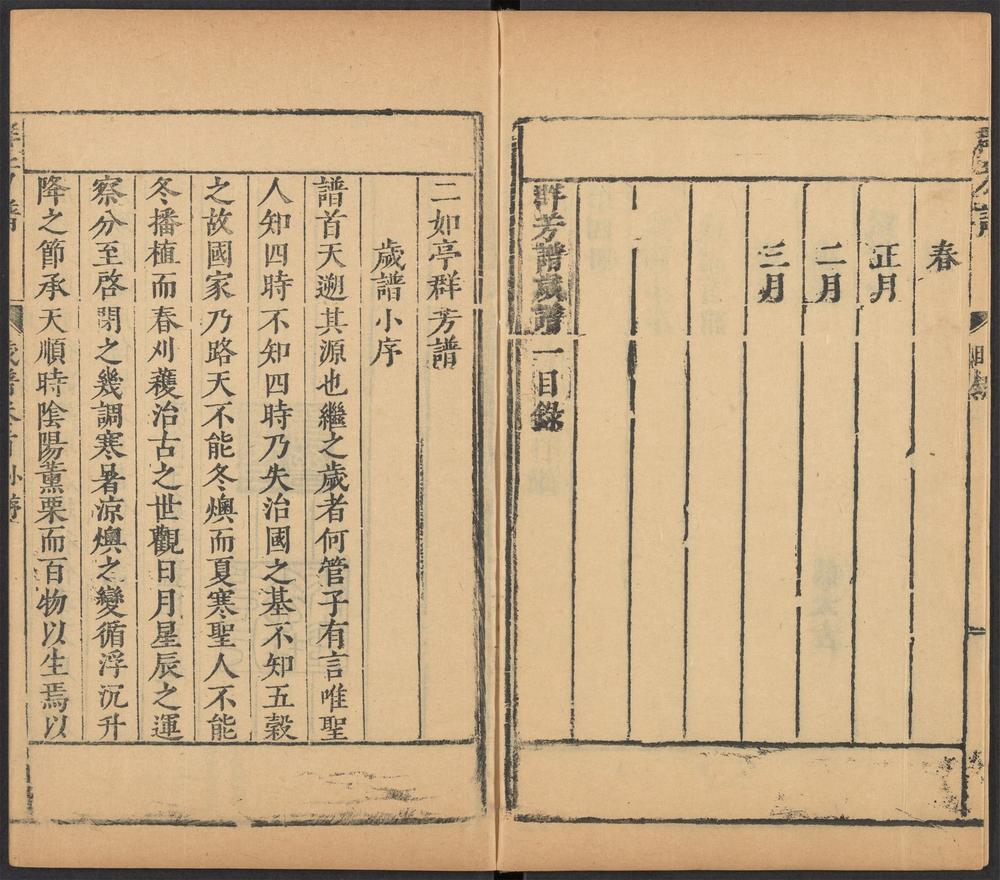 春
正月
二月
三月
群芳譜歲譜一目錄
二如亭群芳譜
歲譜小序
譜首天遡其源也繼之歲者何管子有言唯聖
人知四時不知四時乃失治國之基不知五穀
之故國家乃路天不能冬燠而夏寒聖人不能
冬播植而春刈穫治古之世觀日月星辰之運
察分至啓閉之幾調寒暑涼燠之變循浮沉升
降之節承天順時陰陽薰栗而百物以生焉以